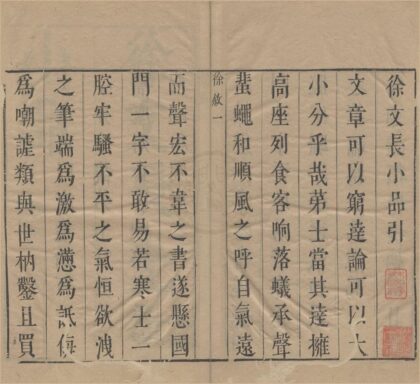 徐文長小品引
文章可以窮達論可以大
小分乎哉第士當其達擁
高座列食客响落蟻承聲
蜚蠅和順風之呼自氣遠
徐敘一
而聲宏不韋之書遂懸國
門一字不敢易若寒士一
腔牢騷不平之氣恒欲洩
之筆端爲激爲懣爲詆侮
爲嘲謔類與世枘鑿且買